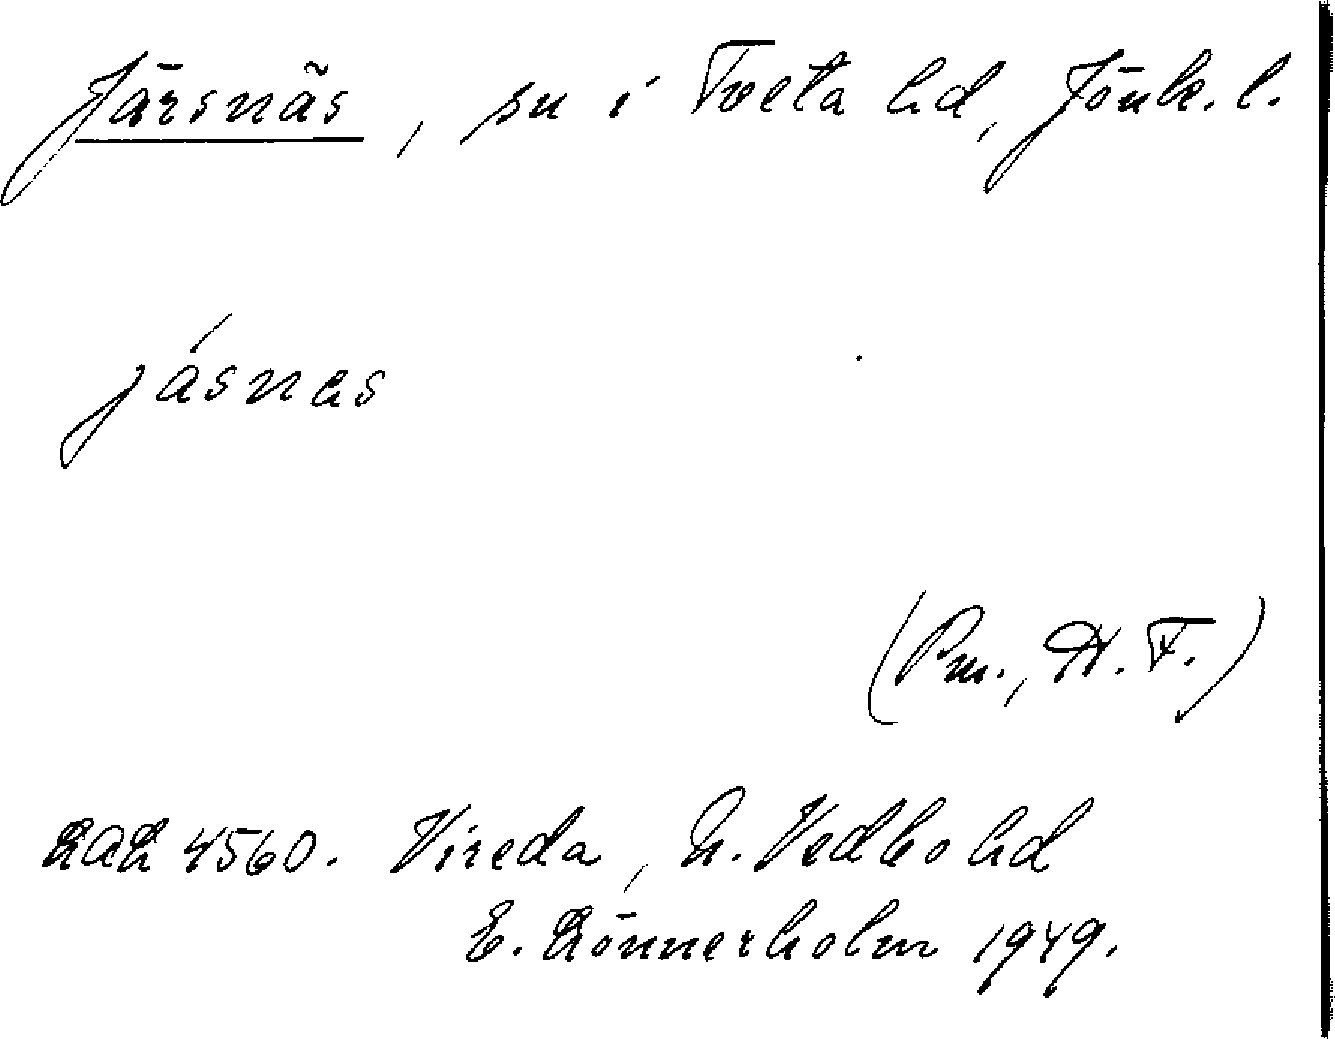 Järsnäs, sn i Tveta hd, Jönk. l.
jásnas
(Pm., H. F.)
LAL 4560. Vireda, N. Vedbo hd
E. Lönnerholm 1949.